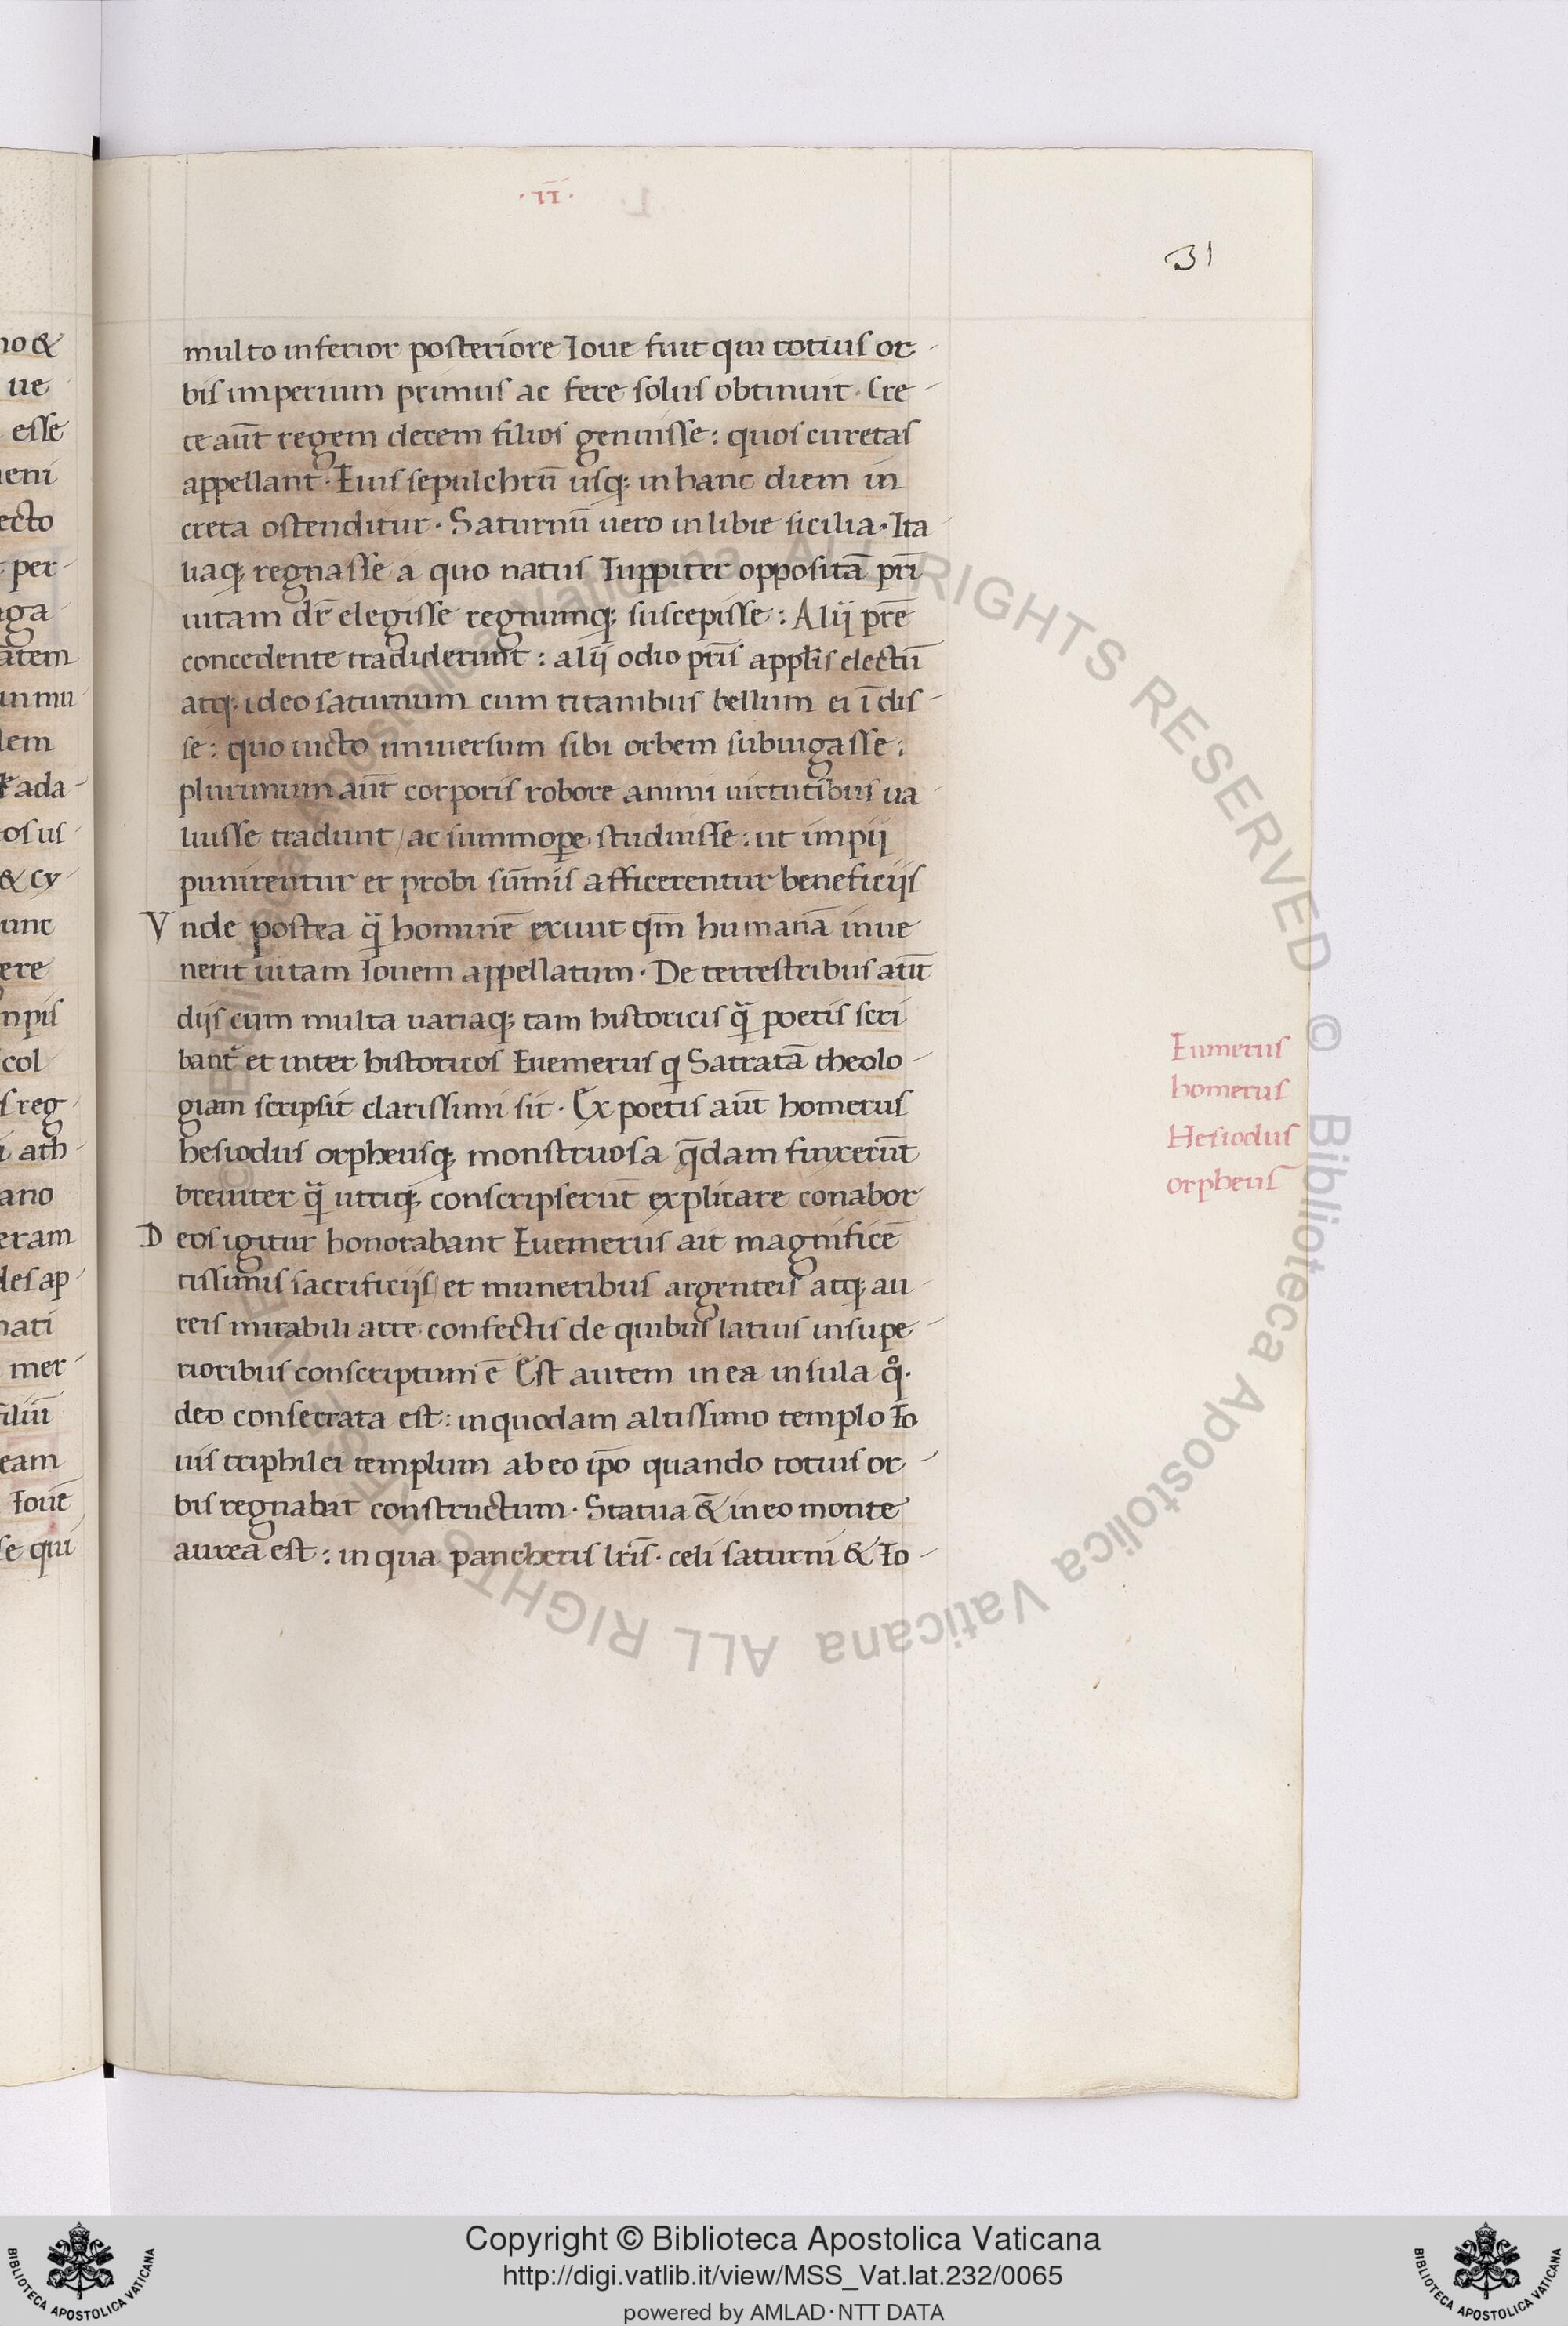 ·II·
31
multo inferior posteriore Ioue fuit qui totius or-
bis imperium primus ac fere solus obtinuit· Cre-
te aūt regem decem filios genuisse: quos curetas
appellant· Eius sepulchrū usq; in hanc diem in
creta ostenditur· Saturnū uero in libie sicilia· Ita-
liaq; regnasse a quo natus Iuppiter oppositā pr̄i
uitam dr̄ elegisse regnumq; suscepisse: Alij pr̄e
concedente tradiderunt: alij odio pr̄is appl̄is electū
atq; ideo saturnum cum titanibus bellum ei īdis-
se: quo uicto uniuersum sibi orbem subiugasse:
plurimum aūt corporis robore animi uirtutibus ua-
luisse tradunt / ac summope studuisse: ut impij
punirentur et probi sūmis afficerentur beneficijs
Vnde postea q̄ hominē exuit qm̄ humanā inue
nerit uitam Iouem appellatum· De terrestribus aūt
dijs cum multa uariaq; tam historicis q̄ poetis scri
bant̄ et inter historicos Euemerus q Satratā theolo-
giam scripsit clarissimi sit· Ex poetis aūt homerus
hesiodus orpheusq; monstruosa q̄dam finxerūt
breuiter q̄ utriq; conscripserūt explicare conabor
Deos igitur honorabant Euemerus ait magnificē
tissimis sacrificijs et muneribus argenteis atq; au-
reis mirabili arte confectis de quibus latius in supe-
rioribus conscriptum ē Est autem in ea insula qͦ·
deo consecrata est: in quodam altissimo templo Io
uis triphilei templum ab eo ip̄o quando totius or-
bis regnabat constructum· Statua &̄ in eo monte
aurea est: in qua pancheris lr̄is· celi saturni & Io-
Eumerus
homerus
Hesiodus
orpheus
no &
ue
esse
ueni
ecto
per-
aga
atem
un mu
dem
ada-
tos us
& cy
unc
ere
npis
col
s reg
i ath-
ano
eram
des ap
nati
mer
filiū
eam
Iouē
se qui
© Biblioteca Apostolica Vaticana ALL RIGHTS RESERVED © Biblioteca Apostolica Vaticana ALL RIGHTS RESERVED
Copyright © Biblioteca Apostolica Vaticana
http://digi.vatlib.it/view/MSS_Vat.lat.232/0065
powered by AMLAD·NTT DATA
BIBLIOTECA APOSTOLICA VATICANA
BIBLIOTECA APOSTOLICA VATICANA